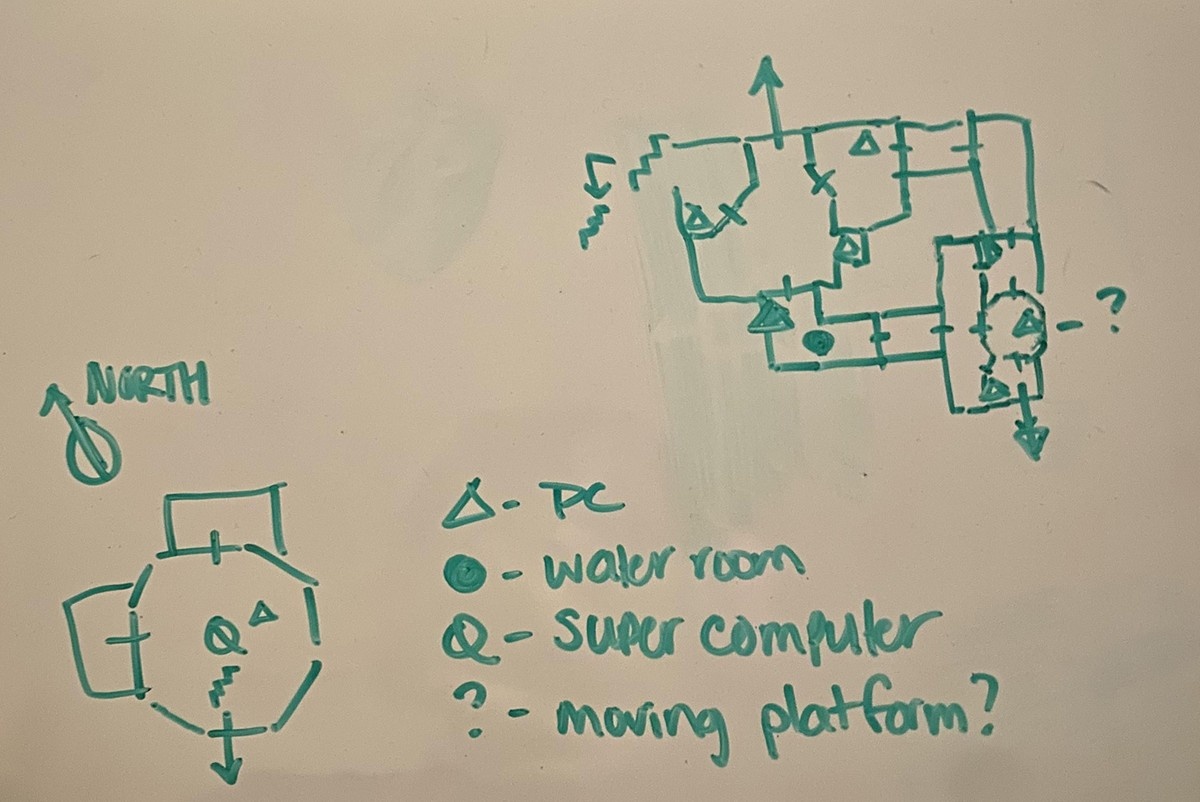 - ?
NORTH
△ - PC
● - water room
Q
Q - super computer
? - moving platform?